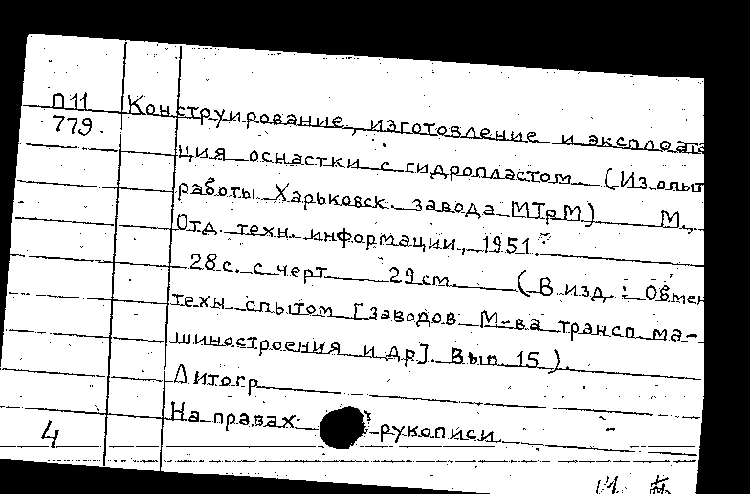 П11 Конструирование, изготовление и эксплоата
779. ция оснастки с гидропластом. (Из опыт
работы Харьковск. завода МТрМ) М.,
Отд. техн. информации, 1951.
28с. с черт 29cm. (В изд.: Обмен
техн опытом [заводов М-ва трансп. ма-
шиностроения и др]. Вып. 15).
Литогр
На правах рукописи
4